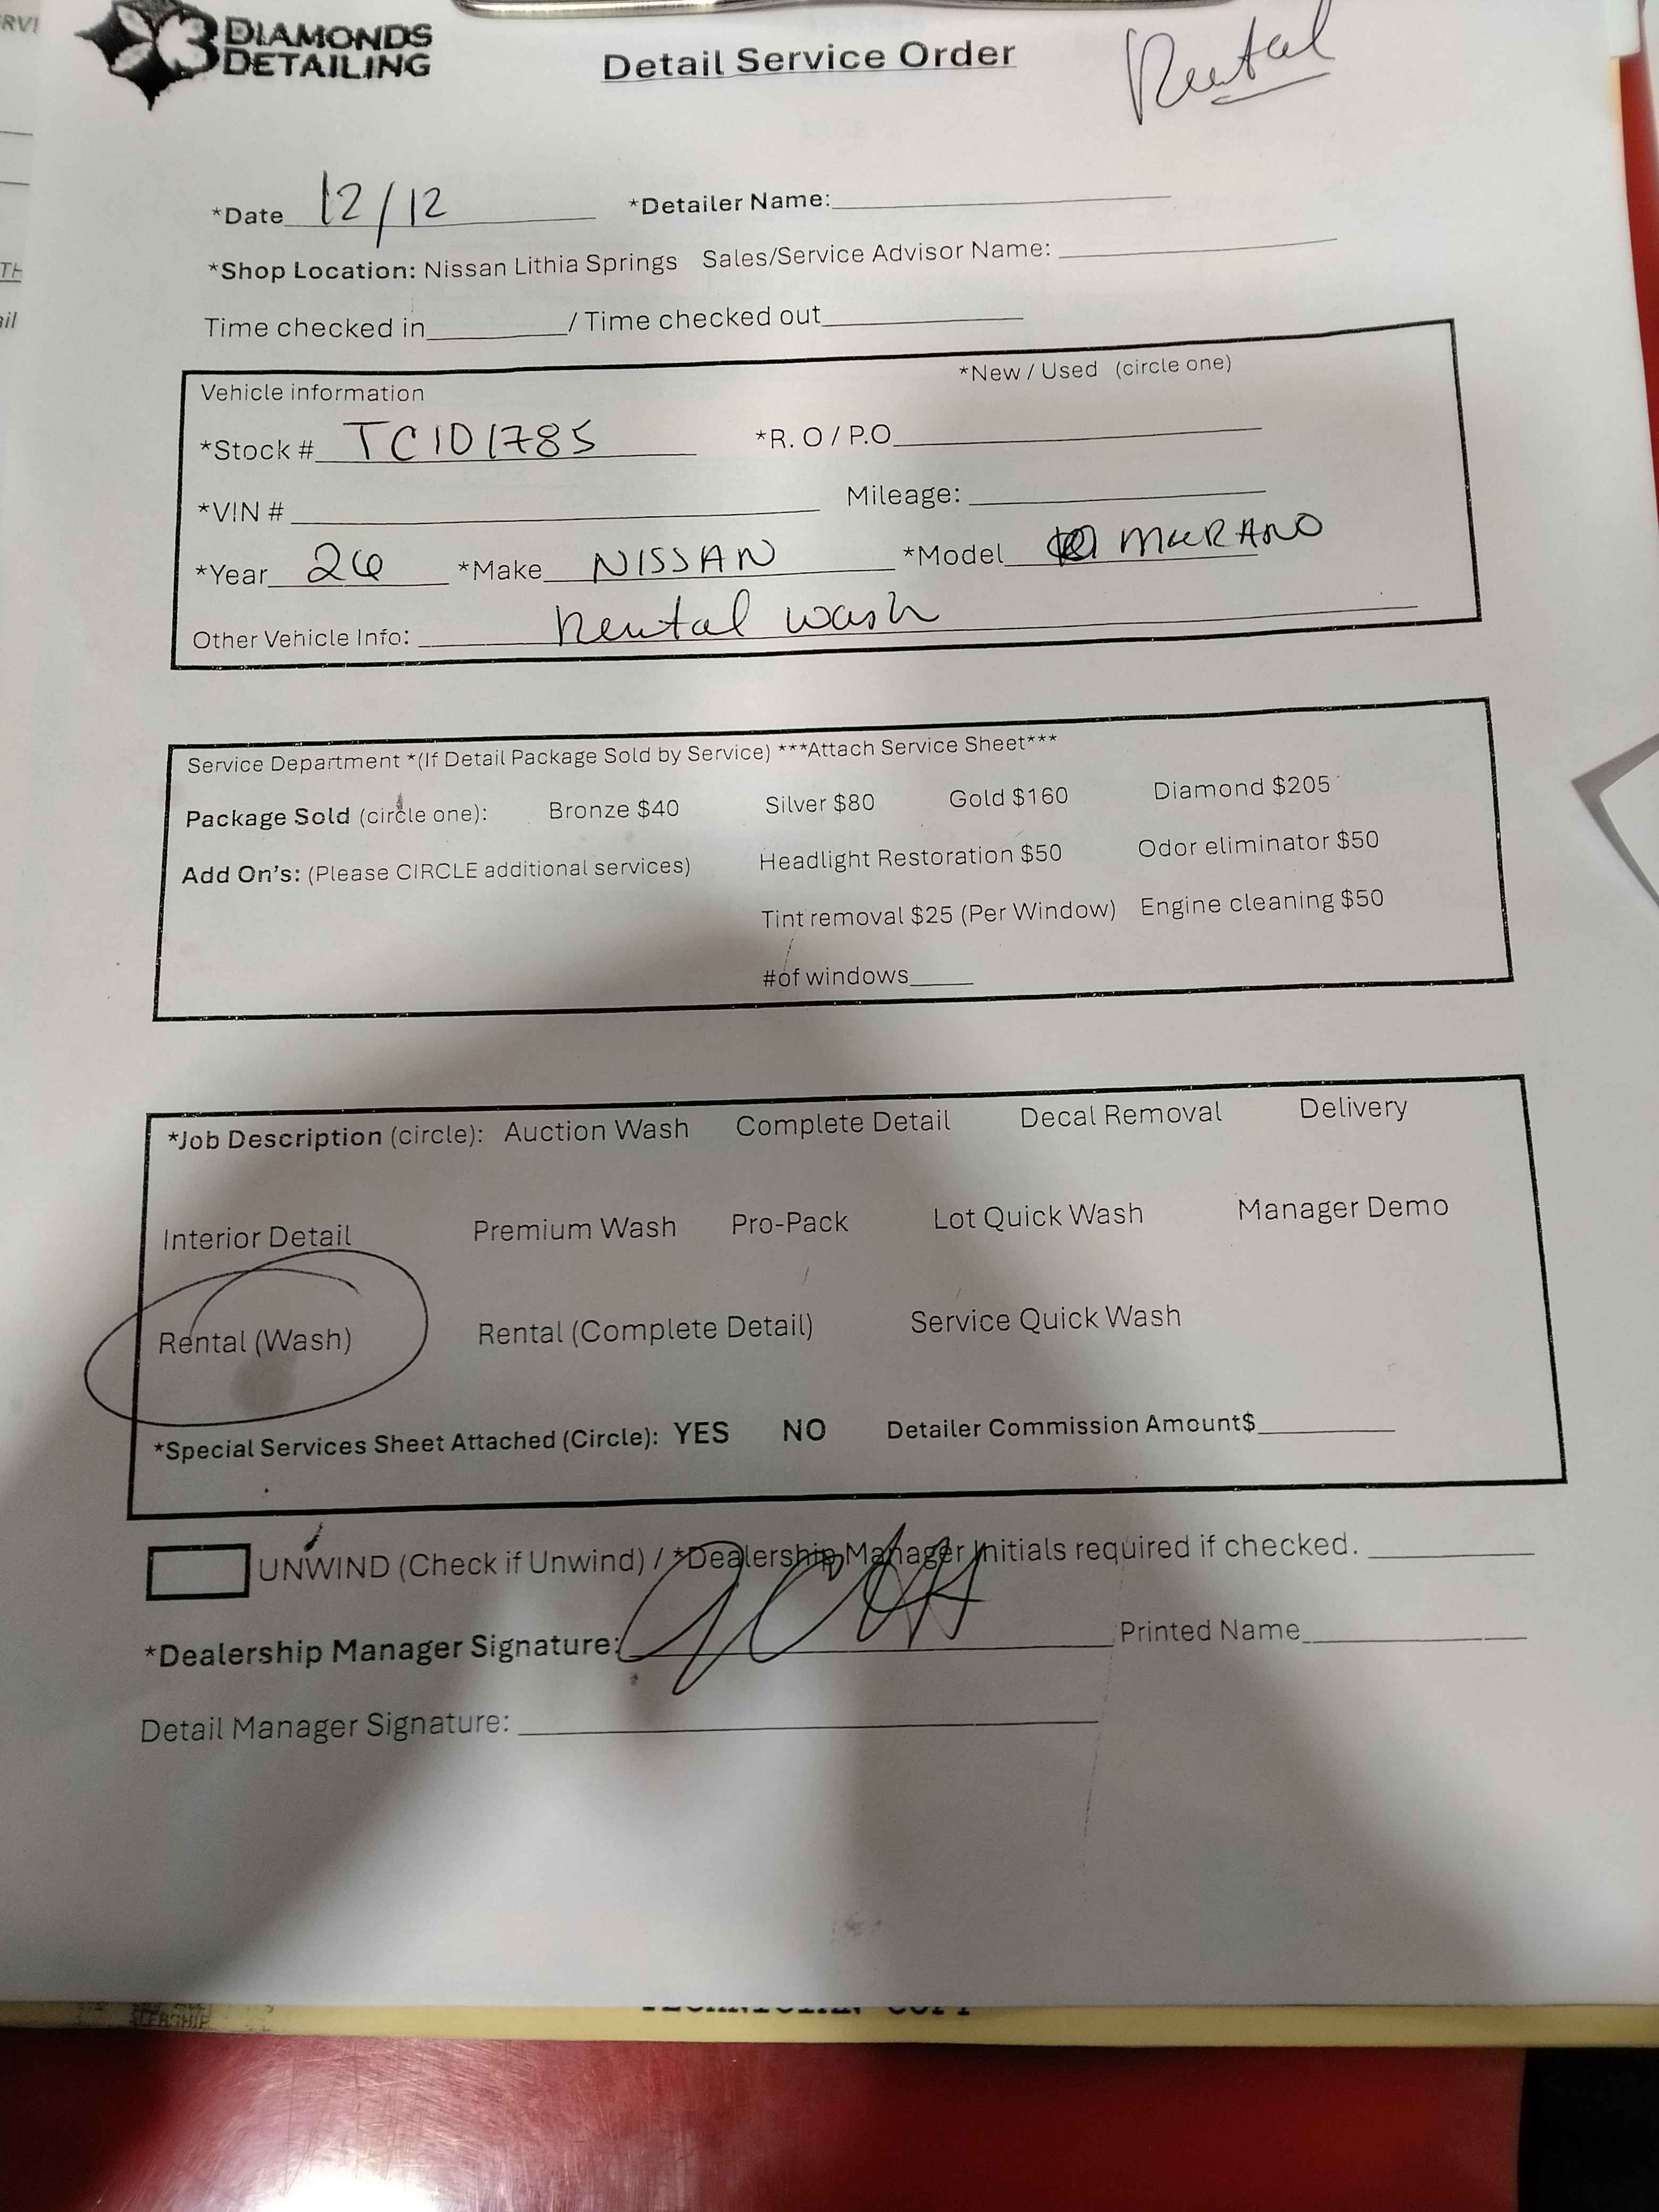 RVI
3 DIAMONDS
DETAILING
Detail Service Order
Rental
*Date 12/12 *Detailer Name:
*Shop Location: Nissan Lithia Springs Sales/Service Advisor Name:
Time checked in / Time checked out
Vehicle information *New / Used (circle one)
*Stock # TC101785 *R. O / P.O
*VIN # Mileage:
*Year 26 *Make NISSAN *Model MURANO
Other Vehicle Info: Rental wash
Service Department *(If Detail Package Sold by Service) ***Attach Service Sheet***
Package Sold (circle one): Bronze $40 Silver $80 Gold $160 Diamond $205
Add On's: (Please CIRCLE additional services) Headlight Restoration $50 Odor eliminator $50
Tint removal $25 (Per Window) Engine cleaning $50
#of windows
*Job Description (circle): Auction Wash Complete Detail Decal Removal Delivery
Interior Detail Premium Wash Pro-Pack Lot Quick Wash Manager Demo
Rental (Wash) Rental (Complete Detail) Service Quick Wash
*Special Services Sheet Attached (Circle): YES NO Detailer Commission Amount$
UNWIND (Check if Unwind) / *Dealership Manager Initials required if checked.
*Dealership Manager Signature: Printed Name
Detail Manager Signature:
TECHNICIAN COPY